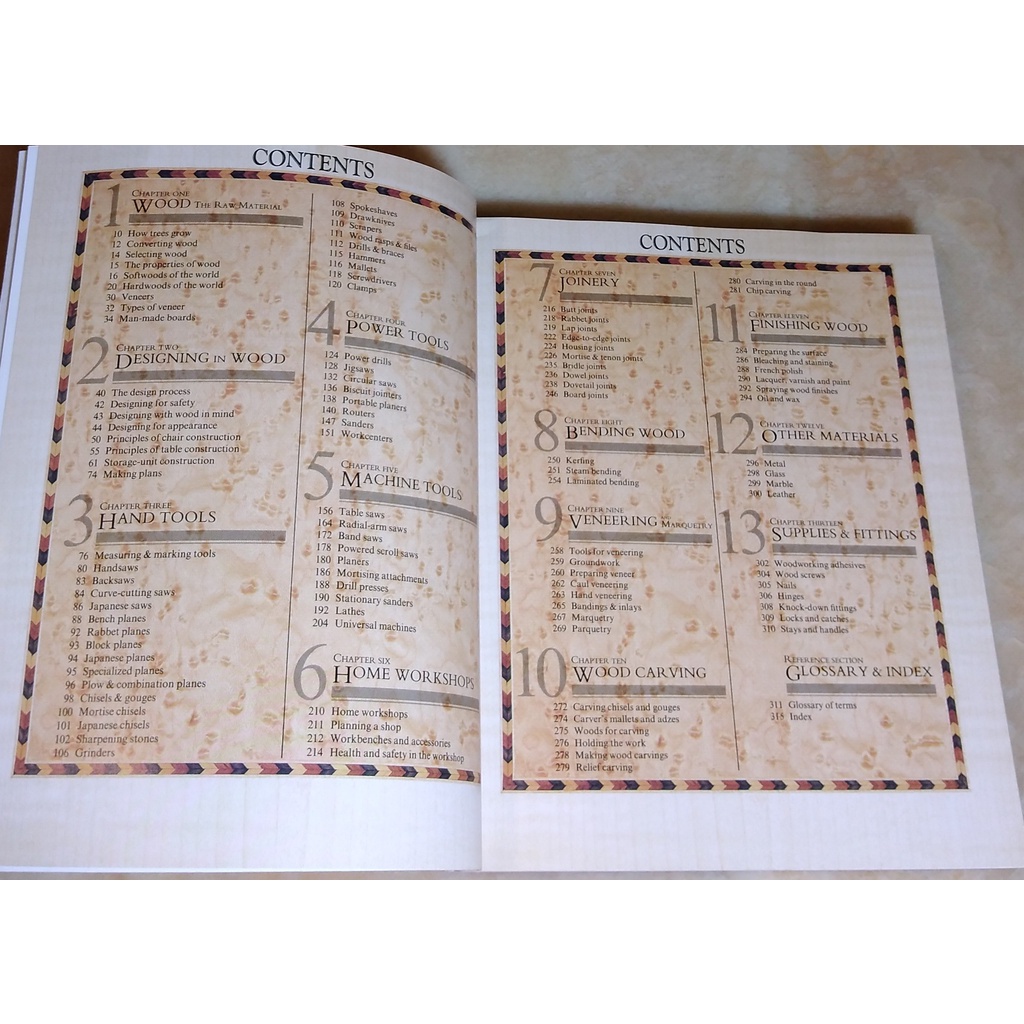 CONTENTS
1
CHAPTER ONE
WOOD THE RAW MATERIAL
10 How trees grow
12 Converting wood
14 Selecting wood
15 The properties of wood
16 Softwoods of the world
20 Hardwoods of the world
30 Veneers
32 Types of veneer
34 Man-made boards
2
CHAPTER TWO
DESIGNING IN WOOD
40 The design process
42 Designing for safety
43 Designing with wood in mind
44 Designing for appearance
50 Principles of chair construction
55 Principles of table construction
61 Storage-unit construction
74 Making plans
3
CHAPTER THREE
HAND TOOLS
76 Measuring & marking tools
80 Handsaws
83 Backsaws
84 Curve-cutting saws
86 Japanese saws
88 Bench planes
92 Rabbet planes
93 Block planes
94 Japanese planes
95 Specialized planes
96 Plow & combination planes
98 Chisels & gouges
100 Mortise chisels
101 Japanese chisels
102 Sharpening stones
106 Grinders
108 Spokeshaves
109 Drawknives
110 Scrapers
111 Wood rasps & files
112 Drills & braces
115 Hammers
116 Mallets
118 Screwdrivers
120 Clamps
4
CHAPTER FOUR
POWER TOOLS
124 Power drills
128 Jigsaws
132 Circular saws
136 Biscuit jointers
138 Portable planers
140 Routers
147 Sanders
151 Workcenters
5
CHAPTER FIVE
MACHINE TOOLS
156 Table saws
164 Radial-arm saws
172 Band saws
178 Powered scroll saws
180 Planers
186 Mortising attachments
188 Drill presses
190 Stationary sanders
192 Lathes
204 Universal machines
6
CHAPTER SIX
HOME WORKSHOPS
210 Home workshops
211 Planning a shop
212 Workbenches and accessories
214 Health and safety in the workshop
CONTENTS
7
CHAPTER SEVEN
JOINERY
216 Butt joints
218 Rabbet joints
219 Lap joints
222 Edge-to-edge joints
224 Housing joints
226 Mortise & tenon joints
235 Bridle joints
236 Dowel joints
238 Dovetail joints
246 Board joints
8
CHAPTER EIGHT
BENDING WOOD
250 Kerfing
251 Steam bending
254 Laminated bending
9
CHAPTER NINE
VENEERING MARQUETRY
258 Tools for veneering
259 Groundwork
260 Preparing veneer
262 Caul veneering
263 Hand veneering
265 Bandings & inlays
267 Marquetry
269 Parquetry
10
CHAPTER TEN
WOOD CARVING
272 Carving chisels and gouges
274 Carver's mallets and adzes
275 Woods for carving
276 Holding the work
278 Making wood carvings
279 Relief carving
280 Carving in the round
281 Chip carving
11
CHAPTER ELEVEN
FINISHING WOOD
284 Preparing the surface
286 Bleaching and staining
288 French polish
290 Lacquer, varnish and paint
292 Spraying wood finishes
294 Oil and wax
12
CHAPTER TWELVE
OTHER MATERIALS
296 Metal
298 Glass
299 Marble
300 Leather
13
CHAPTER THIRTEEN
SUPPLIES & FITTINGS
302 Woodworking adhesives
304 Wood screws
305 Nails
306 Hinges
308 Knock-down fittings
309 Locks and catches
310 Stays and handles
REFERENCE SECTION
GLOSSARY & INDEX
311 Glossary of terms
315 Index